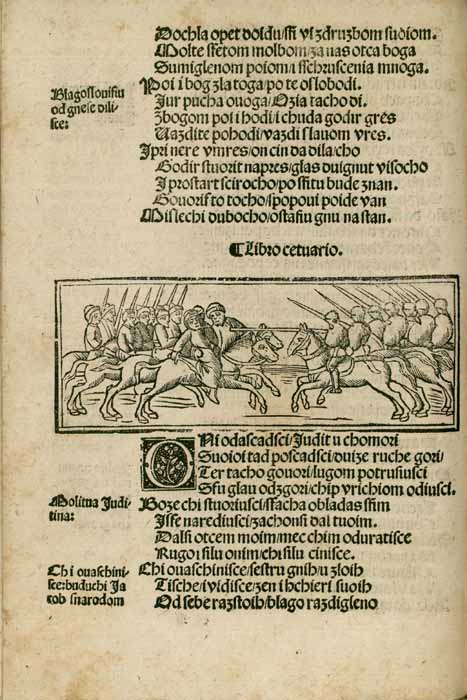 Dochla opet doidu/ſſi vſ zdruzbom ſuoiom.
Molte ſfetom molbom/za uas otca boga
Sumiglenom poiom/i ſſchruſcenia mnoga.
Blagoſlouiſiu
od gneſe dili-
ſce:
Poi i bog zla toga/po te oſlobodi.
Jur pucha ouoga/Ozia tacho di.
Zbogom poi i hodi/i chuda godir gres
Uazdite pohodi/vazdi ſlauom vres.
I pri nere vmres/on cin da dila/cho
Godir ſtuorit napres/glas duignut viſocho
I proſtart ſcirocho/po ſfitu bude znan.
Gouorif to tocho/ſpopoui poide van
Miſlechi dubocho/oſtaſiu gnu na ſtan.
¶ Libro cetuarto.
ONi odaſcadſci/Judit u chomori
Suoioi tad poſcadſci/duize ruche gori/
Ter tacho gouori/lugom potruſiuſci
Sfu glau odzgori/chip vrichiom odiuſci.
Molitua Judi-
tina:
Boze chi ſtuoriuſci/ſfacha obladas ſfim
Iſſe narediuſci/zachonſi dal tuoim.
Dalſi otcem moim/mec chim oduratiſce
Rugoi ſilu onim/chi ſilu ciniſce.
Chi ouaſchini-
ſce:buduchi Ja
cob ſnarodom
Chi ouaſchiniſce/ſeſtru gnih/u zloih
Tiſche/i vidiſce/zen i hchieri ſuoih
Od ſebe razſtoih/blago razdigleno